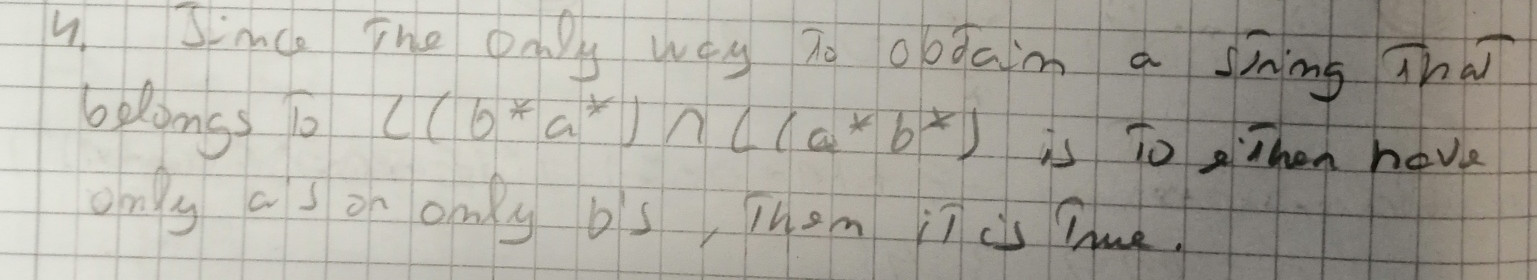 4. Since the only way to obtain a string that
belongs to L(b*a*) ∩ L(a*b*) is to either have
only a's or only b's, then it is true.